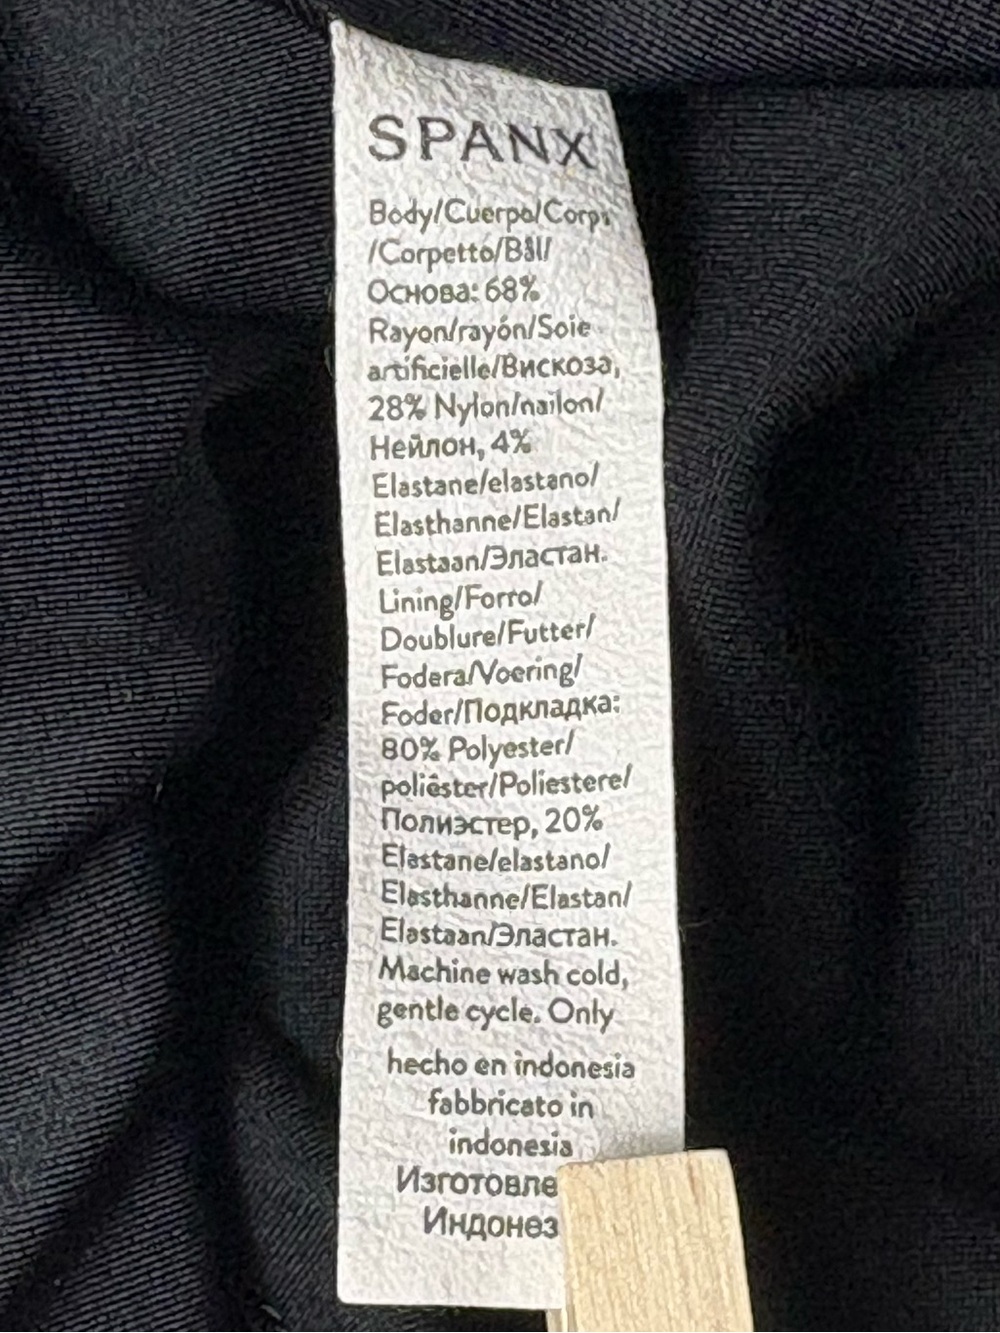 SPANX
Body/Cuerpo/Corps
/Corpetto/Bål/
Основа: 68%
Rayon/rayón/Soie
artificielle/Вискоза,
28% Nylon/nailon/
Нейлон, 4%
Elastane/elastano/
Elasthanne/Elastan/
Elastaan/Эластан.
Lining/Forro/
Doublure/Futter/
Fodera/Voering/
Foder/Подкладка:
80% Polyester/
poliéster/Poliestere/
Полиэстер, 20%
Elastane/elastano/
Elasthanne/Elastan/
Elastaan/Эластан.
Machine wash cold,
gentle cycle. Only
hecho en indonesia
fabbricato in
indonesia
Изготовле
Индонез